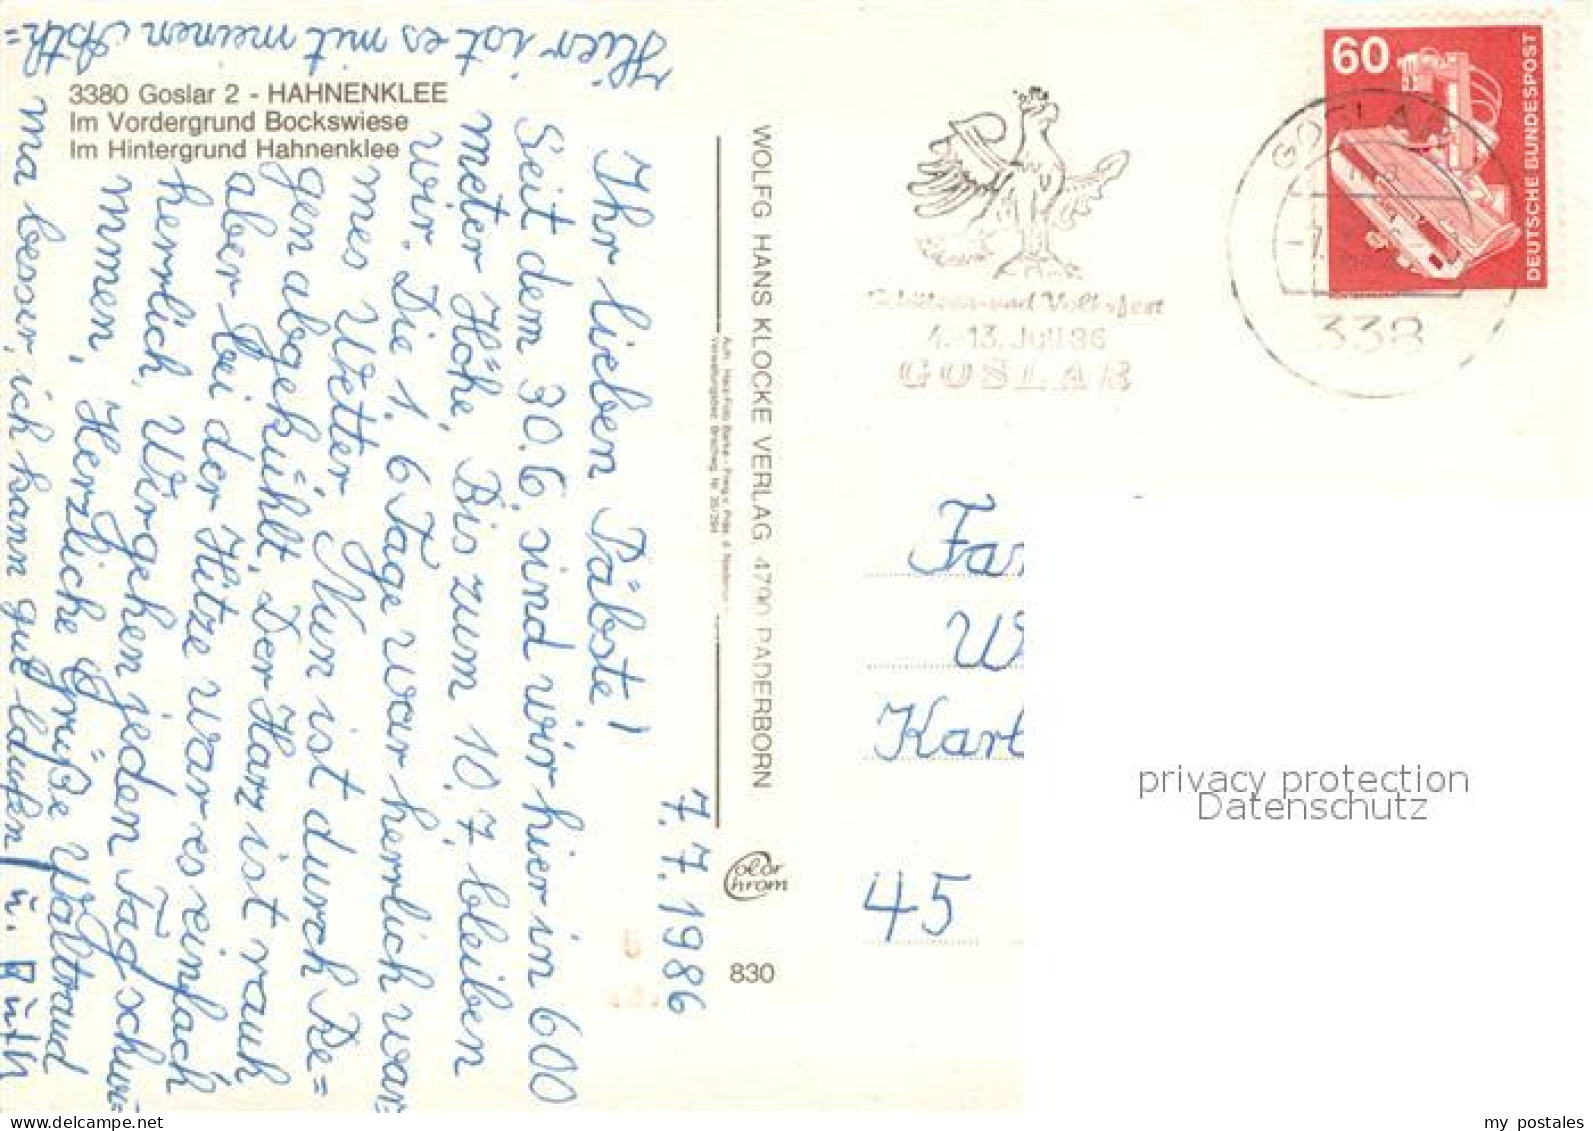 3380 Goslar 2 - HAHNENKLEE
Im Vordergrund Bockswiese
Im Hintergrund Hahnenklee
7.7.1986
Ihr lieben Päbste!
Seit dem 30.6. sind wir hier in 600
meter Höhe. Bis zum 10.7 bleiben
wir. Die 1. 6 Tage war herrlich war=
mes Wetter. Nun ist durch Re=
gen abgekühlt. Der Harz ist rauh
aber bei der Hitze war es einfach
herrlich. Wir gehen jeden Tag schwi=
mmen. Herzliche Grüße Waltraud
u. Ruth
Hier ist es mit meinen Asth=
ma besser, ich kann gut laufen
WOLFG HANS KLOCKE VERLAG 4790 PADERBORN
Color
Chrom
830
Schützen- und Volksfest
4.-13. Juli 86
GOSLAR
GOSLAR
-7.
338
60
DEUTSCHE BUNDESPOST
Fa
W
Kart
45
privacy protection
Datenschutz
my postales